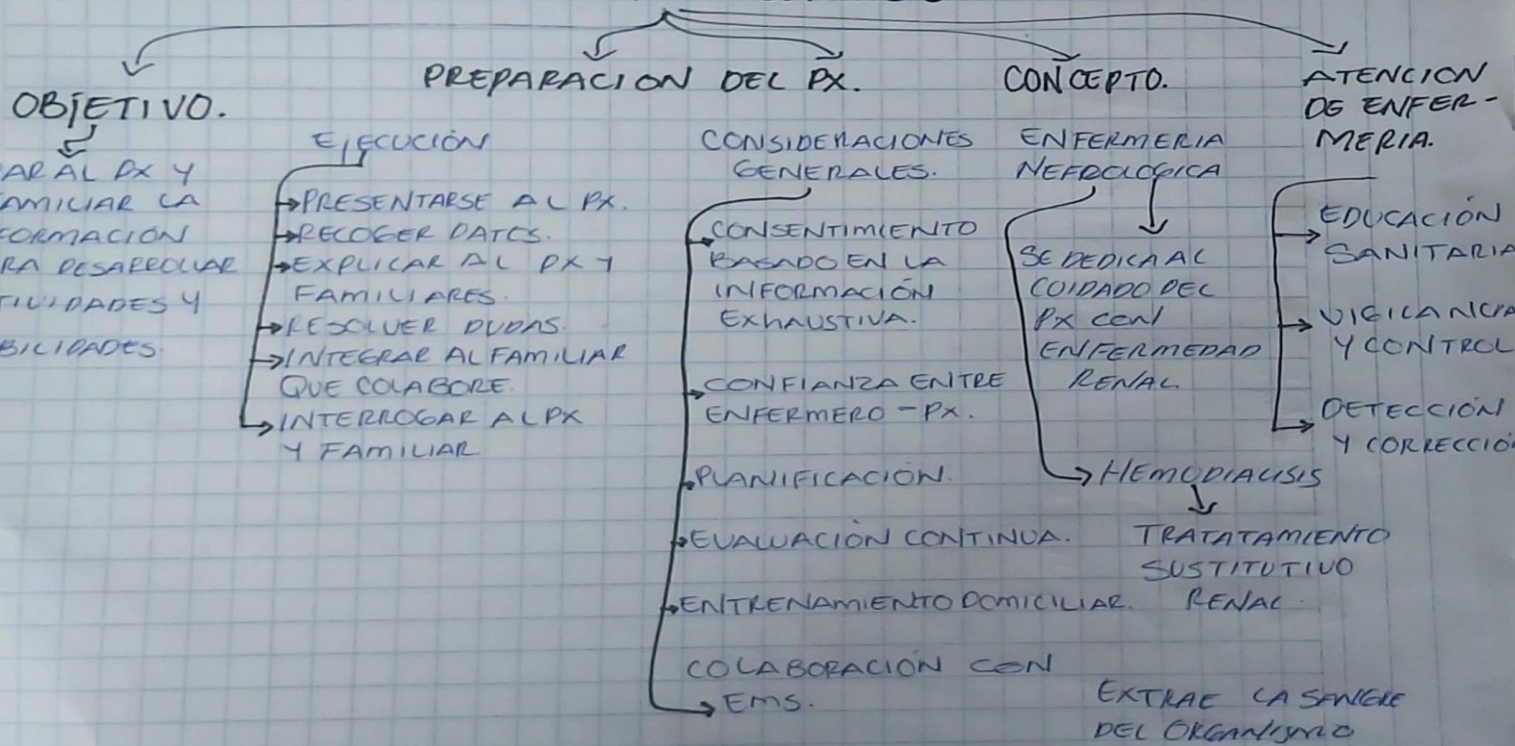 OBJETIVO.
AR AL PX Y
AMILIAR LA
FORMACIÓN
RA DESARROLLAR
TIVIDADES Y
BILIDADES.
PREPARACION DEL PX.
EJECUCIÓN
PRESENTARSE AL PX.
RECOGER DATOS.
EXPLICAR AL PX Y
FAMILIARES.
RESOLVER DUDAS.
INTEGRAR AL FAMILIAR
QUE COLABORE.
INTERROGAR AL PX
Y FAMILIAR
CONSIDERACIONES
GENERALES.
CONSENTIMIENTO
BASADO EN LA
INFORMACIÓN
EXHAUSTIVA.
CONFIANZA ENTRE
ENFERMERO - PX.
PLANIFICACIÓN.
EVALUACIÓN CONTINUA.
ENTRENAMIENTO DOMICILIAR.
COLABORACIÓN CON
EMS.
CONCEPTO.
ENFERMERIA
NEFROLOGICA
SE DEDICA AL
CUIDADO DEL
PX CON
ENFERMEDAD
RENAL
HEMODIALISIS
TRATATAMIENTO
SUSTITUTIVO
RENAL.
EXTRAE LA SANGRE
DEL ORGANISMO
ATENCION
DE ENFER-
MERIA.
EDUCACIÓN
SANITARIA
VIGILANCIA
Y CONTROL
DETECCIÓN
Y CORRECCIÓ